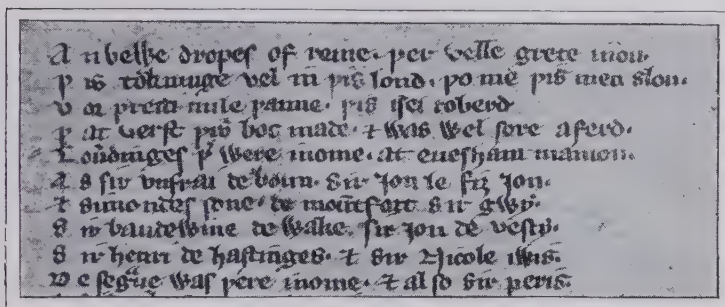 A n vewe dropes of reine. þer velle grete inou.
þ is tokninge vel in þis lond. þo me þis men slou.
v or þretti mile þanne. þis isei roberd
þ at verst þis boc made. ⁊ was wel sore aferd.
L ouerdinges þer were inome. at euesham manion.
A s sir vnfrai de boun. sir Jon le fiz Jon.
⁊ simondes sone. de mountfort sir gwy.
S ir baudewine de wake. sir Jon de vescy.
S ir henri de hastinges. ⁊ sir Nicole iwis.
D e segraue was þere inome. ⁊ also sir peris.